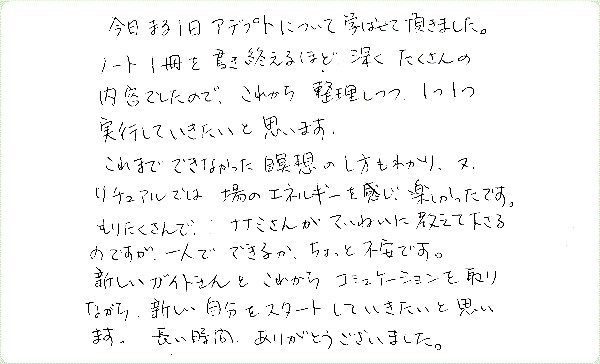 今日まる1日アデプトについて学ばせて頂きました。
ノート1冊を書き終えるほど深くたくさんの
内容でしたので、これから整理しつつ、1つ1つ
実行していきたいと思います。
これまでできなかった瞑想のし方もわかり、又、
リチュアルでは場のエネルギーを感じ、楽しかったです。
もりだくさんで、ナナミさんがていねいに教えて下さる
のですが、一人でできるか、ちょっと不安です。
新しいガイドさんとこれからコミュニケーションを取り
ながら、新しい自分をスタートしていきたいと思い
ます。長い時間、ありがとうございました。